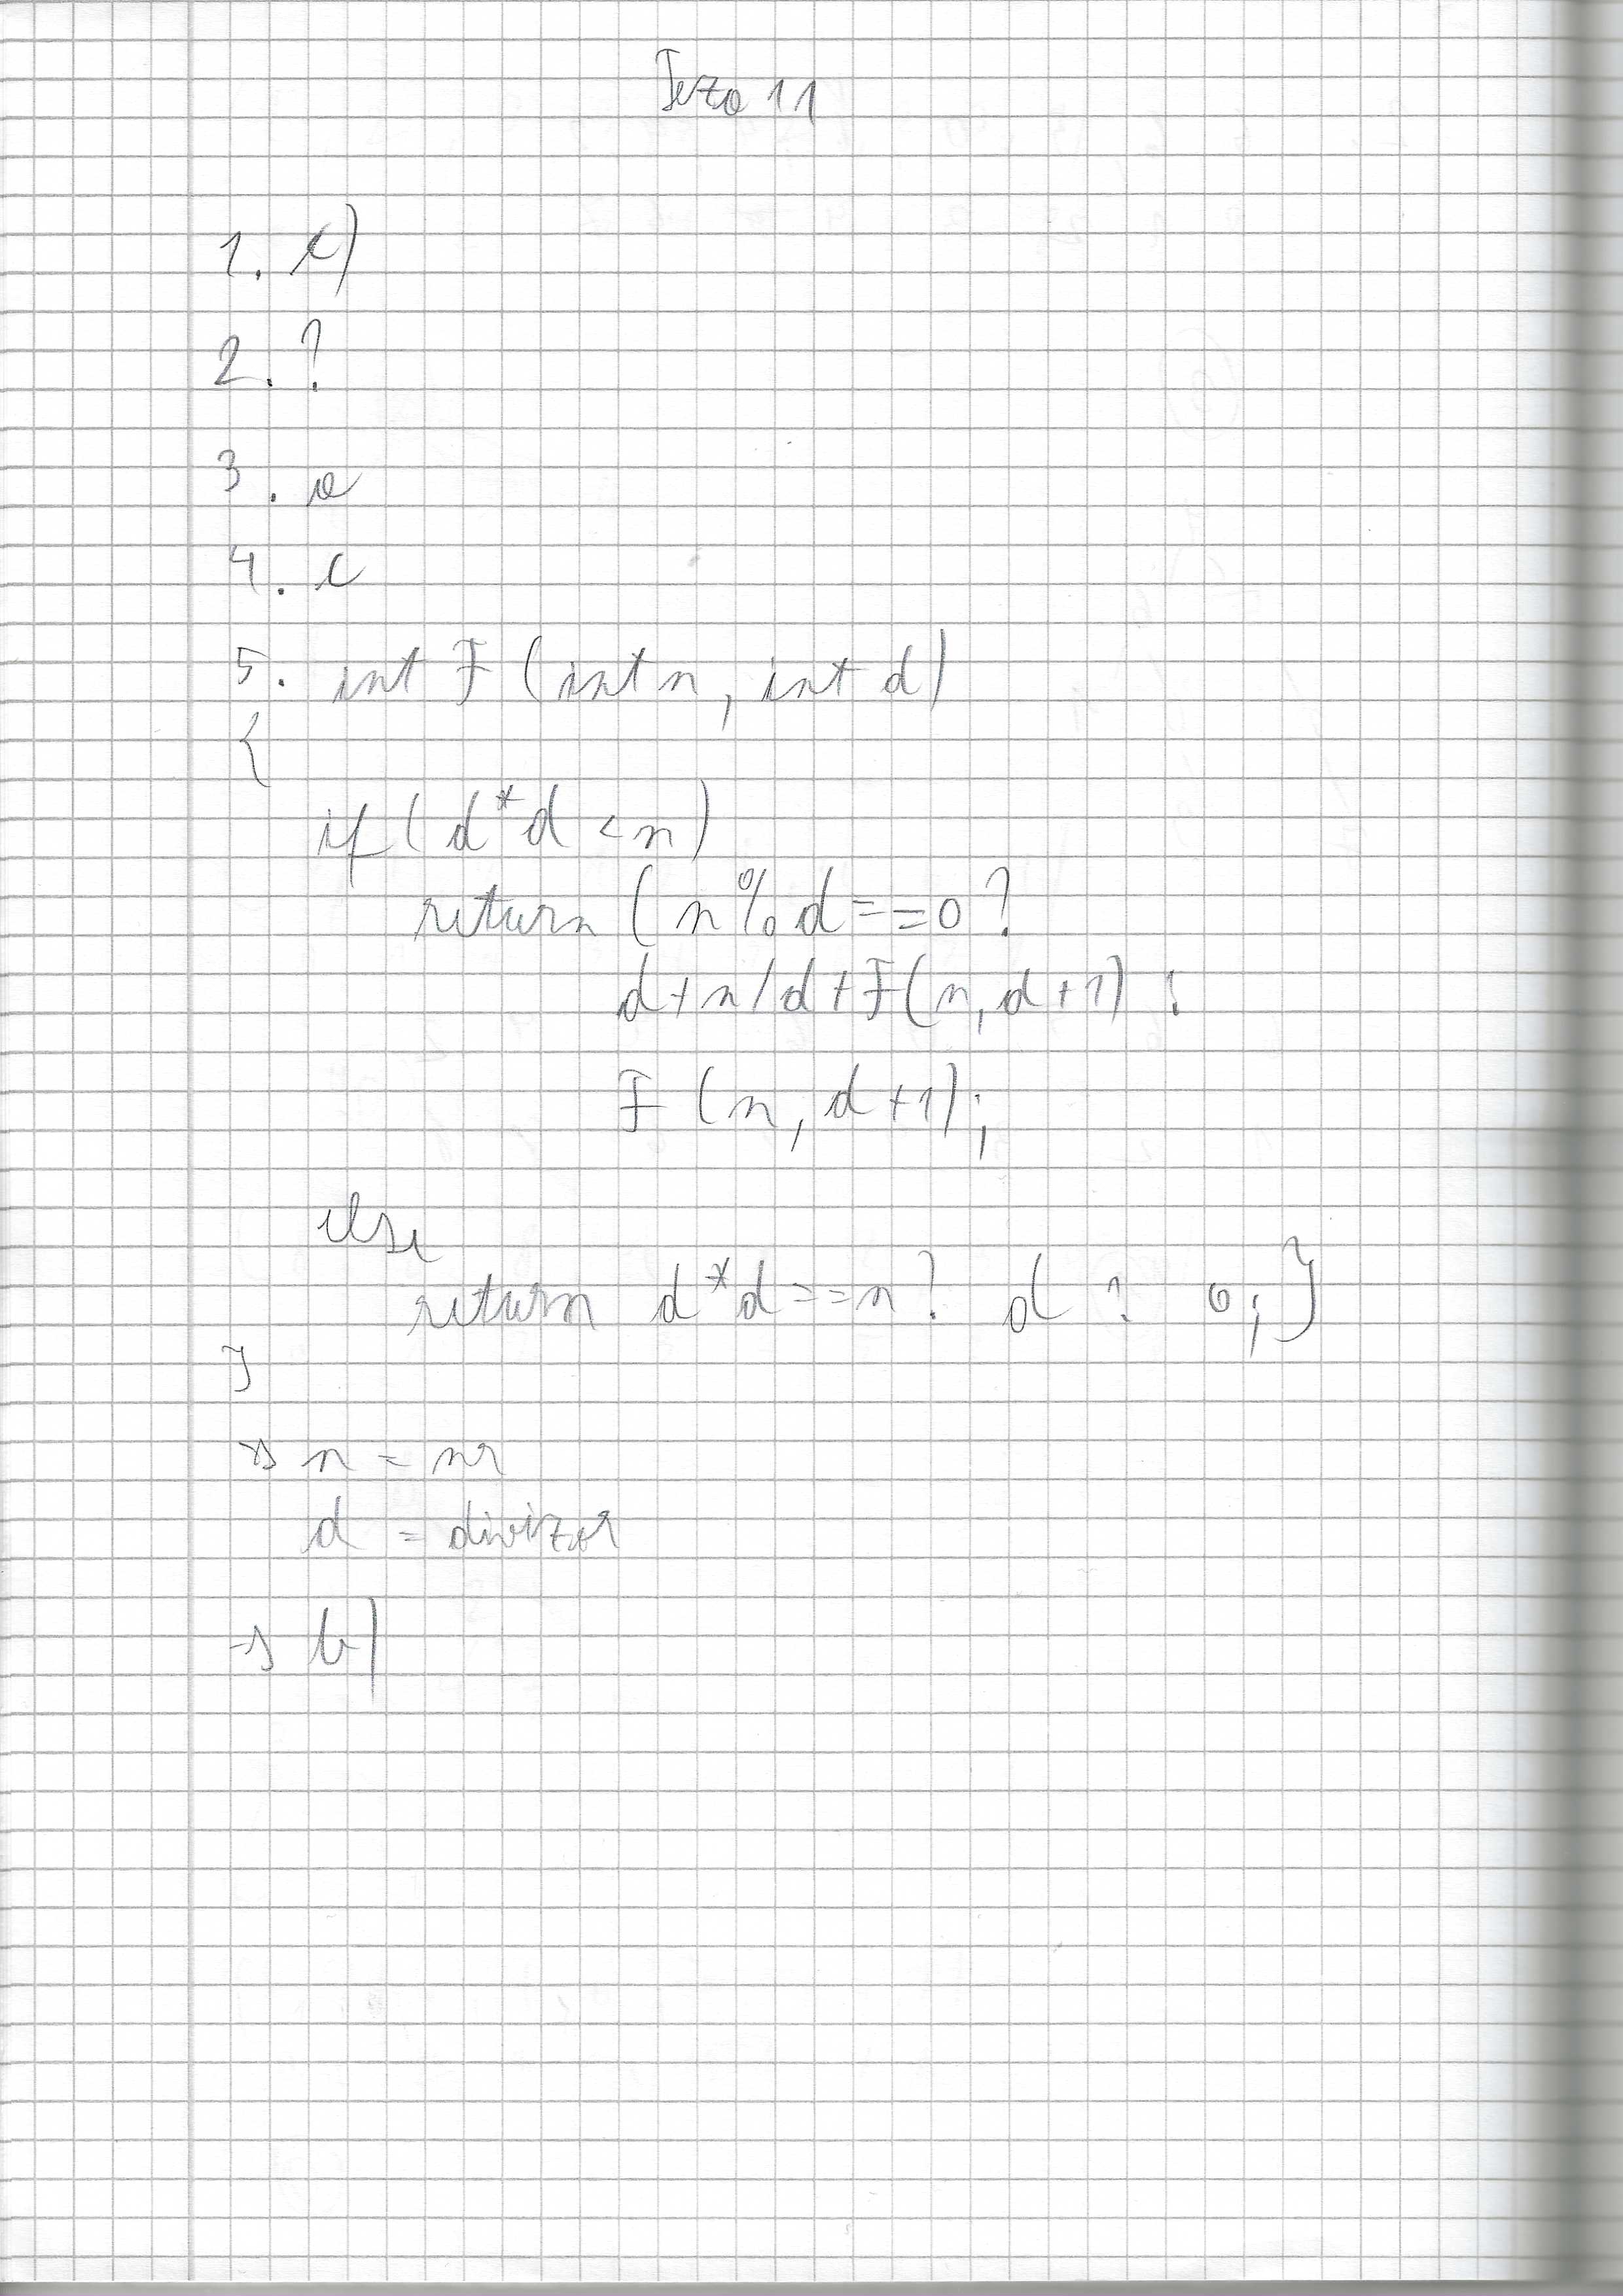 Teza 11
1. c)
2. ?
3. a
4. c
5. int F (int n, int d)
{
if ( d*d < n)
return ( n % d == 0 ?
d + n / d + F(n, d+1) :
F (n, d+1);
else
return d*d == n ? d ? 0; }
}
→ n = nr
d = divizor
→ b)